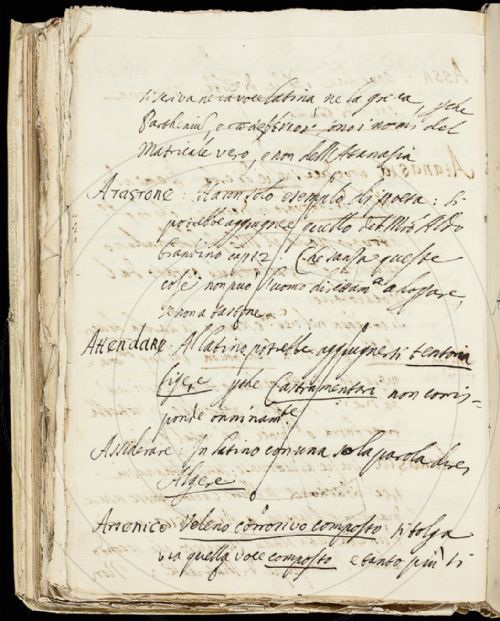 si scriva ne la voce latina ne la greca, perche
Parthenium, e παρθένιον sono i nomi del
Matricale vero, e non dell'Atanasia
A Tastone: v'è un solo esempio di poeta: si
potrebbe aggiugnere quello del Aldo
brandino cap 12: Che senza queste
cose non può l'uomo
se non a tastone
Attendare: Al latino potrebbe aggiugnersi tentoria
figere perche Castrametari non corris-
ponde omninamte
Assiderare: In latino con una sola parola direi
Algere
Arsenico Veleno corrosivo composto si tolga
via quella voce composto e tanto più si